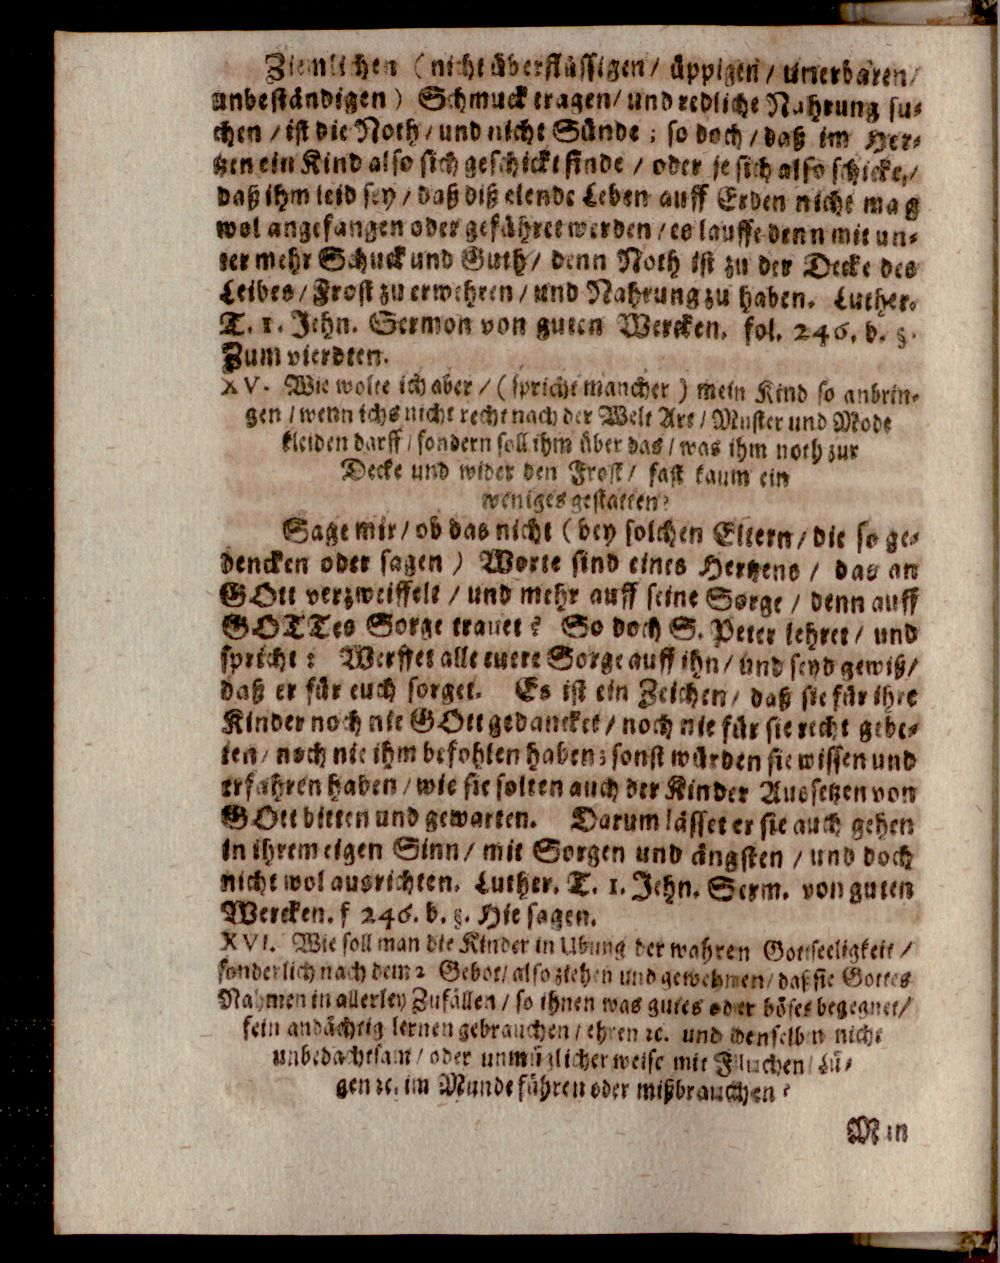 Ziemlichen (nicht überflüssigen/ üppigen/ unerbaren/
unbeständigen) Schmuck tragen/ und redliche Nahrung su-
chen / ist die Noth/ und nicht Sünde; so doch/ daß im Her-
tzen ein Kind also sich geschickt finde / oder je sich also schicke,/
daß ihm leid sey / daß diß elende Leben auff Erden nicht mag
wol angefangen oder geführet werden / es lauffe denn mit un-
ter mehr Schuck und Guth/ denn Noth ist zu der Decke des
Leibes/ Frost zu erwehren / und Nahrung zu haben. Luther.
T. 1. Jehn. Sermon von guten Wercken. fol. 246. b. §.
Zum vierdten.
XV. Wie wolte ich aber / (spricht mancher) mein Kind so anbrin-
gen / wenn ichs nicht recht nach der Welt Art / Muster und Mode
kleiden darff / sondern soll ihm über das / was ihm noth zur
Decke und wider den Frost/ fast kaum ein
weniges gestatten?
Sage mir/ ob das nicht (bey solchen Eltern/ die so ge-
dencken oder sagen) Worte sind eines Hertzens / das an
GOtt verzweiffelt / und mehr auff seine Sorge / denn auff
GOTTes Sorge trauet? So doch S. Peter lehret / und
spricht: Werffet alle euere Sorge auff ihn/ und seyd gewiß/
daß er für euch sorget. Es ist ein Zeichen/ daß sie für ihre
Kinder noch nie GOtt gedancket / noch nie für sie recht gebe-
ten/ noch nie ihm befohlen haben; sonst würden sie wissen und
erfahren haben / wie sie solten auch der Kinder Aussetzen von
GOtt bitten und gewarten. Darum lässet er sie auch gehen
in ihrem eigen Sinn/ mit Sorgen und ängsten / und doch
nicht wol ausrichten. Luther. T. 1. Jehn. Serm. von guten
Wercken. f 246. b. §. Hie sagen.
XVI. Wie soll man die Kinder in Ubung der wahren Gottseeligkeit /
sonderlich nach dem 2 Gebot/ also ziehen und gewehnen/ daß sie Gottes
Nahmen in allerley Zufällen / so ihnen was gutes oder böses begegnet/
fein andächtig lernen gebrauchen / ehren ꝛc. und denselben nicht
unbedachtsam / oder unnützlicher weise mit Fluchen/ Lü-
gen ꝛc. im Munde führen oder mißbrauchen?
Man